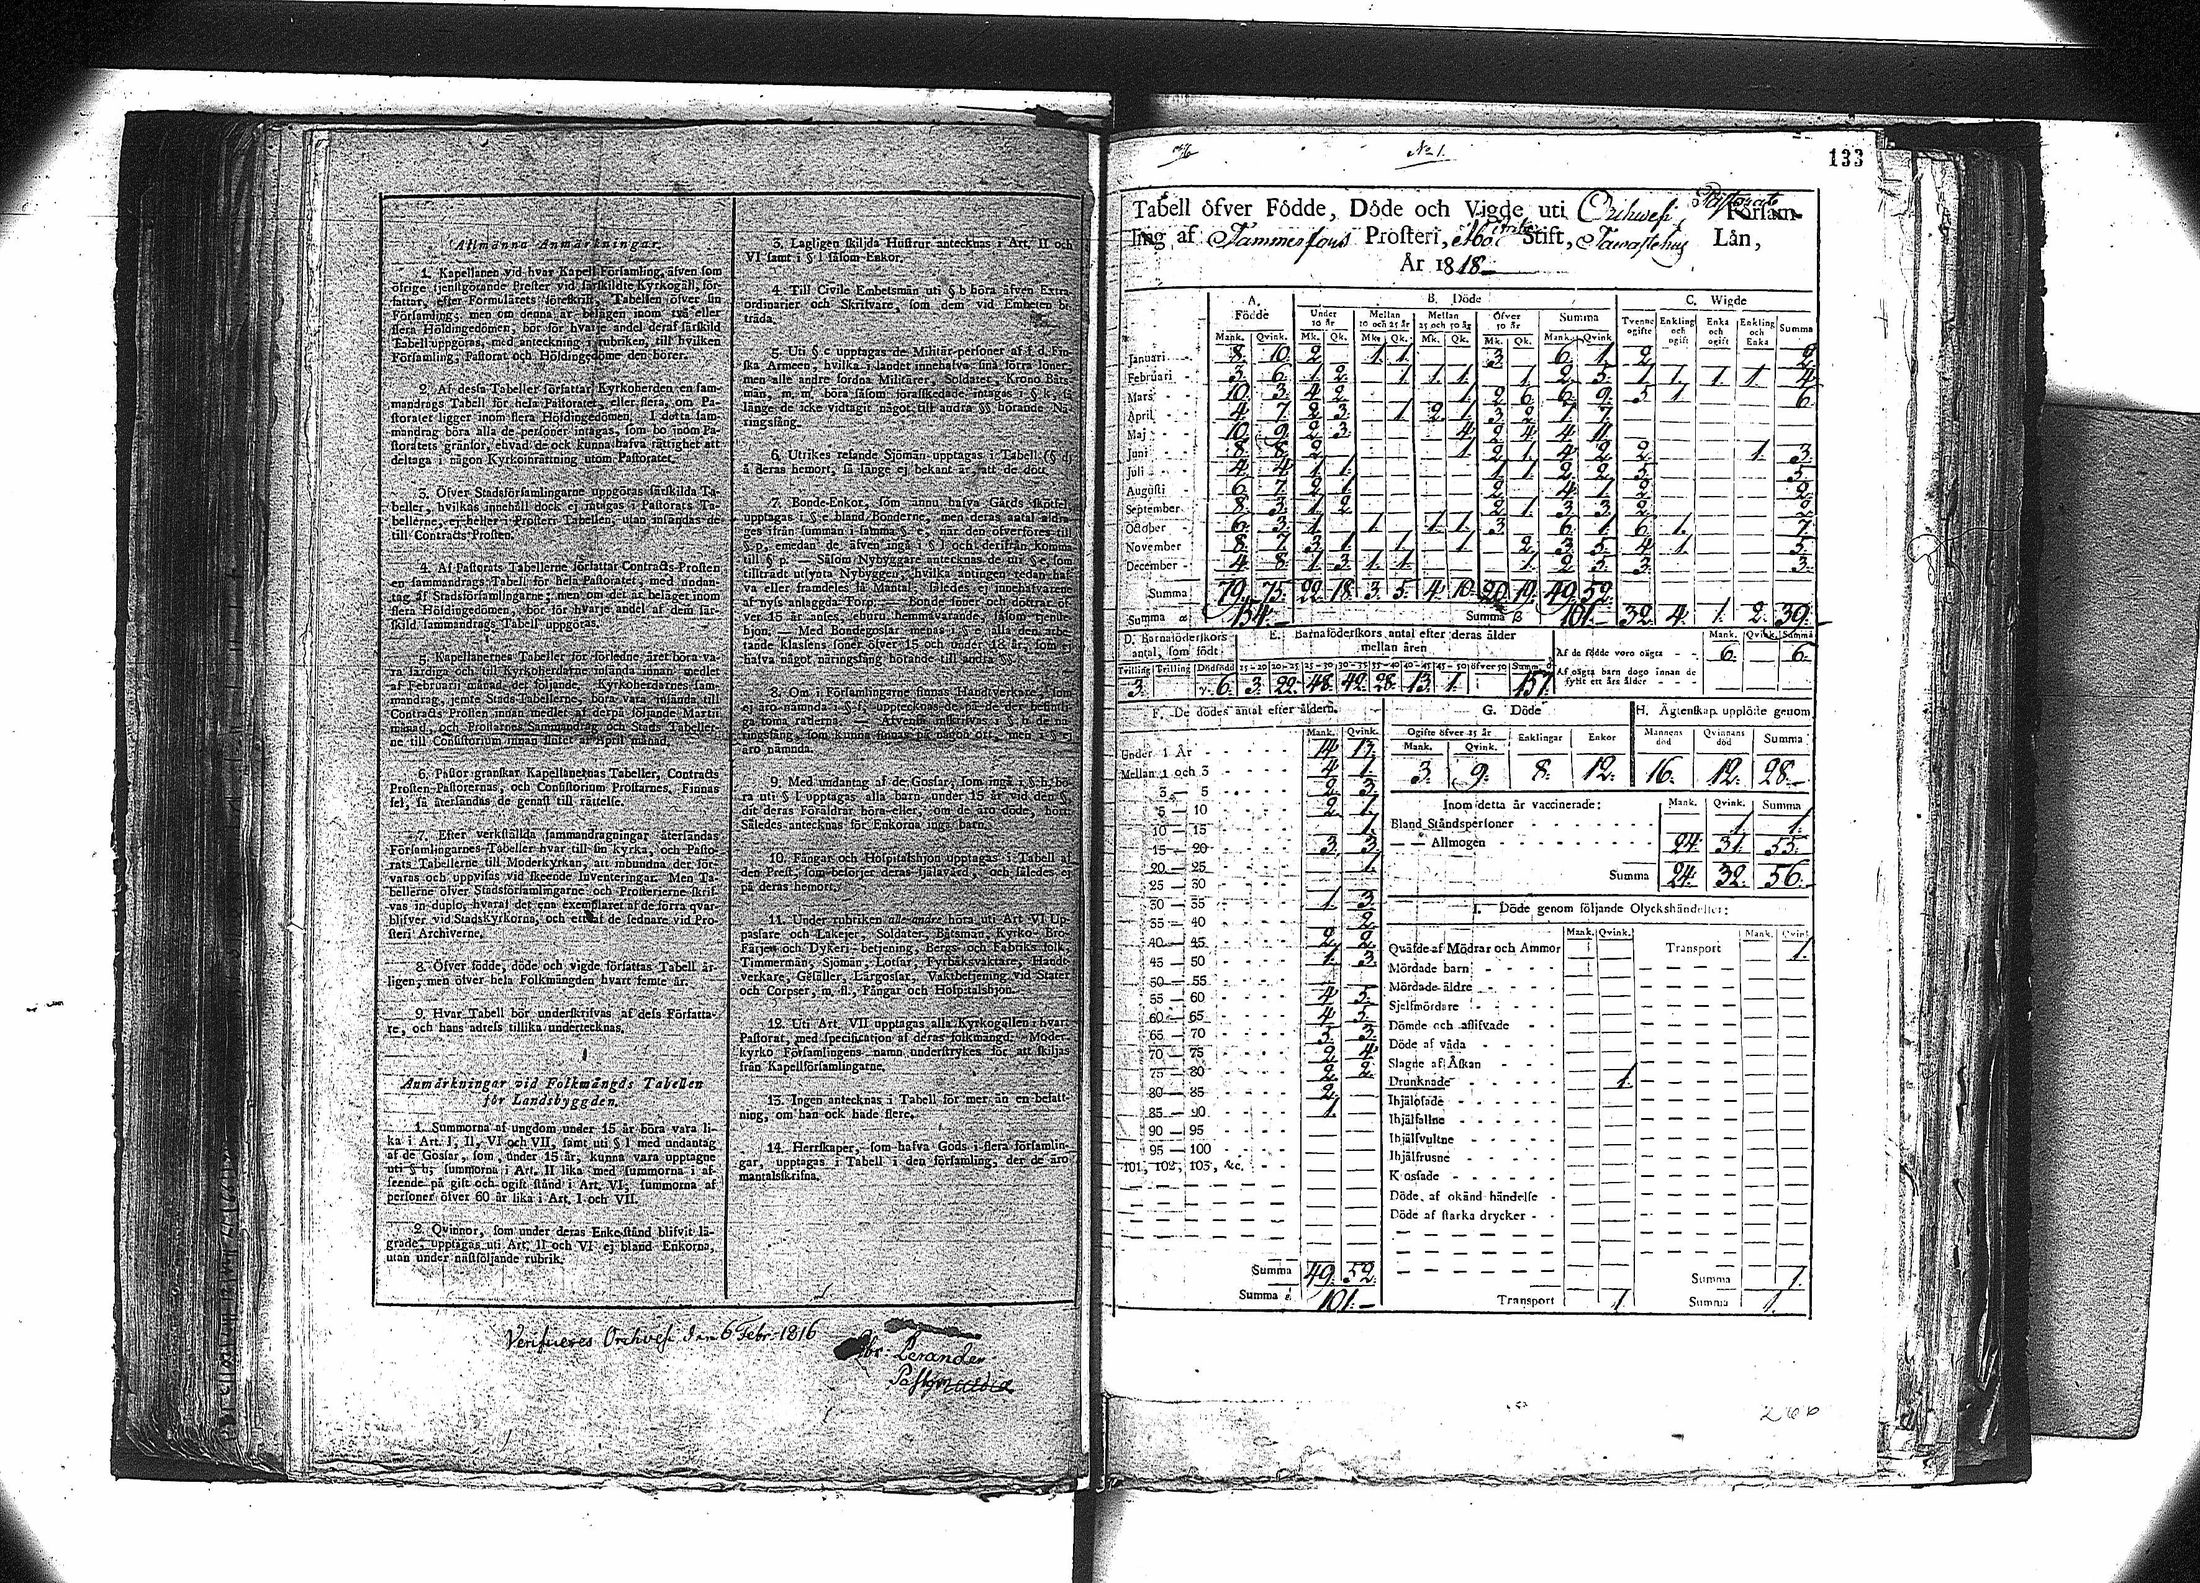 Allmänna Anmärkningar.
1. Kapellanen vid hvar Kapell Församling, äfven som
öfrige tjenstgörande Prester vid särskildte Kyrkogäll, för-
fattar, efter Formulärets föreskrift, Tabellen öfver sin
Församling; men om denna är belägen inom två eller
flera Höfdingedömen, bör för hvarje andel deraf särskild
Tabell uppgöras, med anteckning i rubriken, till hvilken
Församling, Pastorat och Höfdingedöme den hörer.
2. Af dessa Tabeller författar Kyrkoherden en sam-
mandrags Tabell för hela Pastoratet, eller flera, om Pa-
storatet ligger inom flera Höfdingedömen. I detta sam-
mandrag böra alla de personer intagas, som bo inom Pa-
storatets gränsor, ehvad de ock kunna hafva rättighet att
deltaga i någon Kyrkoinrättning utom Pastoratet.
3. Öfver Stadsförsamlingarne uppgöras särskilda Ta-
beller, hvilkas innehåll dock ej intages i Pastorats Ta-
bellerne, ej heller i Prosteri Tabellen, utan insändas de
till Contracts Prosten.
4. Af Pastorats Tabellerne författar Contracts-Prosten
en sammandrags Tabell för hela Pastoratet, med undan-
tag af Stadsförsamlingarne; men om det är beläget inom
flera Höfdingedömen, bör för hvarje andel af dem sär-
skild sammandrags Tabell uppgöras.
5. Kapellanernes Tabeller för förledne året böra va-
ra färdiga och till Kyrkoherdarne insända innan medlet
af Februarii månad det följande. Kyrkoherdarnes sam-
mandrag, jemte Stads Tabellerne, böra vara insända till
Contracts Prosten innan medlet af derpå följande Martii
månad, och Prostarnes Sammandrag och Stads Tabeller-
ne till Consistorium innan slutet af April månad.
6. Pastor granskar Kapellanernas Tabeller, Contracts
Prosten Pastorernas, och Consistorium Prostarnes. Finnas
fel, så återsändas de genast till rättelse.
7. Efter verkställda sammandragningar återsändas
Församlingarnes Tabeller hvar till sin kyrka, och Pasto-
rats Tabellerne till Moderkyrkan, att inbundna der för-
varas och uppvisas vid skeende Inventeringar. Men Ta-
bellerne öfver Stadsförsamlingarne och Prosterierne skrif-
vas in duplo, hvaraf det ena exemplaret af de förra qvar-
blifver vid Stadskyrkorna, och ett af de sednare vid Pro-
steri Archiverne.
8. Öfver födde, döde och vigde författas Tabell år-
ligen; men öfver hela Folkmängden hvart femte år.
9. Hvar Tabell bör underskrifvas af dess Författa-
re, och hans adress tillika undertecknas.
Anmärkningar vid Folkmängds Tabellen
för Landsbyggden.
1. Summorna af ungdom under 15 år böra vara li-
ka i Art. I, II, VI och VII, samt uti § l med undantag
af de Gossar, som, under 15 år, kunna vara upptagne
uti § b; summorna i Art. II lika med summorna i af-
seende på gift och ogift stånd i Art. VI; summorna af
personer öfver 60 år lika i Art. I och VII.
2. Qvinnor, som under deras Enkestånd blifvit lä-
grade, upptagas uti Art. II och VI ej bland Enkorna,
utan under nästföljande rubrik.
3. Lagligen skiljda Hustrur antecknas i Art. II och
VI samt i § l såsom Enkor.
4. Till Civile Embetsmän uti § b höra äfven Extra
ordinarier och Skrifvare, som dem vid Embeten bi-
träda.
5. Uti § c upptagas de Militär-personer af f. d. Fin-
ska Armeen, hvilka i landet innehafva sina förra löner
men alle andre fordna Militärer, Soldater, Krono Båts-
män, m. m. böra såsom förafskedade intagas i § k, så
länge de icke vidtagit något till andra §§ hörande Nä-
ringsfång.
6. Utrikes resande Sjömän upptagas i Tabell (§ d)
å deras hemort, så länge ej bekant är att de dött.
7. Bonde-Enkor, som ännu hafva Gårds skötsel
upptagas i § e bland Bönderne, men deras antal afdra-
ges ifrån summan i samma § e, när den öfverföres till
§ p, emedan de äfven ingå i § l och derifrån komma
till § p. — Såsom Nybyggare antecknas de uti § e, som
tillträdt utsynta Nybyggen, hvilka antingen redan haf-
va eller framdeles få Mantal, således ej innehafvarene
af nyss anlaggda Torp. — Bonde söner och döttrar öf-
ver 15 år anses, ehuru hemmavarande, såsom tjenste-
hjon. — Med Bondegossar menas i § e alla den arbe-
tande klassens söner öfver 15 och under 18 år, som ej
hafva något näringsfång hörande till andra §§.
8. Om i Församlingarne finnas Handtverkare, som
ej äro nämnda i § f, upptecknas de på de der befintli-
ga toma raderna. — Äfvenså inskrifvas i § h de nä-
ringsfång, som kunna finnas på någon ort, men i § ej
äro nämnda.
9. Med undantag af de Gossar, som ingå i § h, bö-
ra uti § l upptagas alla barn under 15 år vid den §,
dit deras Föräldrar höra eller, om de äro döde, hört.
Således antecknas för Enkorna inga barn.
10. Fångar och Hospitalshjon upptagas i Tabell af
den Prest, som besörjer deras själavård, och således ej
på deras hemort.
11. Under rubriken alle andre höra uti Art. VI Up-
passare och Lakejer, Soldater, Båtsmän, Kyrko- Bro-
Färje- och Dykeri- betjening, Bergs- och Fabriks folk,
Timmermän, Sjömän, Lotsar, Fyrbåksväktare, Handt-
verkare, Gesäller, Lärgossar, Vaktbetjening vid Stater
och Corpser, m. fl., Fångar och Hospitalshjon.
12. Uti Art. VII upptagas alla Kyrkogällen i hvart
Pastorat, med specification af deras folkmängd. Moder-
kyrko Församlingens namn understrykes för att skiljas
från Kapellförsamlingarne.
13. Ingen antecknas i Tabell för mer än en befatt-
ning, om han ock hade flere.
14. Herrskaper, som hafva Gods i flera församlin-
gar, upptagas i Tabell i den församling, der de äro
mantalsskrifna.
Verifieres Orihvesi den 6 Febr: 1816
Perander
No 1.
133
Tabell öfver Födde, Döde och Vigde uti Orihvesi Pastorat Försam-
ling af Tammerfors Prosteri, Åbo Stift, Tavastehus Län,
År 1818
A. Födde B. Döde C. Wigde
Under 10 år Mellan 10 och 25 år Mellan 25 och 50 år Öfver 50 år Summa Tvenne ogifte Enkling och ogift Enka och ogift Enkling och Enka Summa
Mank. Qvink. Mk. Qk. Mk. Qk. Mk. Qk. Mk. Qk. Mank. Qvink.
Januari 8. 10. 2. 1. 1. 3. 6. 1. 2. 2.
Februari 3. 6. 1. 2. 1. 1. 1. 1. 2. 5. 1. 1. 1. 1. 4.
Mars 10. 3. 4. 2. 1. 2. 6. 6. 9. 5. 1. 6.
April 4. 7. 2. 3. 1. 2. 1. 3. 2.
Maj 10. 9. 2. 3. 4. 2. 4. 4. 11.
Juni 8. 8. 2. 1. 2. 1. 4. 2. 2. 1. 3.
Juli 4. 4. 1. 1. 1. 1. 2. 2. 5. 5.
Augusti 6. 7. 2. 1. 2. 4. 1. 2. 2.
September 8. 3. 1. 2. 2. 1. 3. 3. 2. 2.
October 6. 3. 1. 1. 1. 1. 3. 6. 1. 6. 1. 7.
November 8. 7. 3. 1. 1. 1. 2. 3. 5. 4. 1. 5.
December 4. 8. 1. 3. 1. 1. 1. 2. 5. 3. 3.
Summa 79. 75. 22. 18. 3. 5. 4. 10. 20. 19. 49. 52.
Summa α 154. Summa β 101. 32. 4. 1. 2. 39.
D. Barnaföderskors antal, som födt
E. Barnaföderskors antal efter deras ålder mellan åren
Mank. Qvink. Summa
Af de födde voro oägta 6. 6.
Af oägta barn dogo innan de fyllt ett års ålder
Tvilling Trilling Dödfödd 15—20 20—25 25—30 30—35 35—40 40—45 45—50 öfver 50 Summa
3. 6. 3. 22. 48. 42. 28. 13. 1. 157.
F. De dödes antal efter åldern.
Mank. Qvink.
Under 1 År 14. 13.
Mellan 1 och 3 4. 1.
3 — 5 2. 3.
5 — 10 2. 1.
10 — 15 1.
15 — 20 3. 3.
20 — 25 1.
25 — 30
30 — 35 1. 3.
35 — 40 2.
40 — 45 2. 2.
45 — 50 1. 3.
50 — 55
55 — 60 4. 5.
60 — 65 4. 5.
65 — 70 5. 3.
70 — 75 2. 4.
75 — 80 2. 2.
80 — 85 2.
85 — 90 1.
90 — 95
95 — 100
101, 102, 103, &c.
Summa 49. 52.
Summa 101.
G. Döde
Ogifte öfver 15 år Enklingar Enkor
Mank. Qvink.
3. 9. 8. 12.
H. Ägtenskap upplöste genom
Mannens död Qvinnans död Summa
16. 12. 28.
Inom detta år vaccinerade: Mank. Qvink. Summa
Bland Ståndspersoner 1. 1.
— — Allmogen 24. 31. 55.
Summa 24. 32. 56.
I. Döde genom följande Olyckshändelser:
Mank. Qvink. Mank. Qvink.
Qväfde af Mödrar och Ammor Transport 1.
Mördade barn
Mördade äldre
Sjelfmördare
Dömde och aflifvade
Döde af våda
Slagne af Åskan
Drunknade 1.
Ihjälösade
Ihjälfallne
Ihjälsvultne
Ihjälfrusne
K osfade
Döde af okänd händelse
Döde af starka drycker
Summa 1.
Transport 1. Summa 1.
266